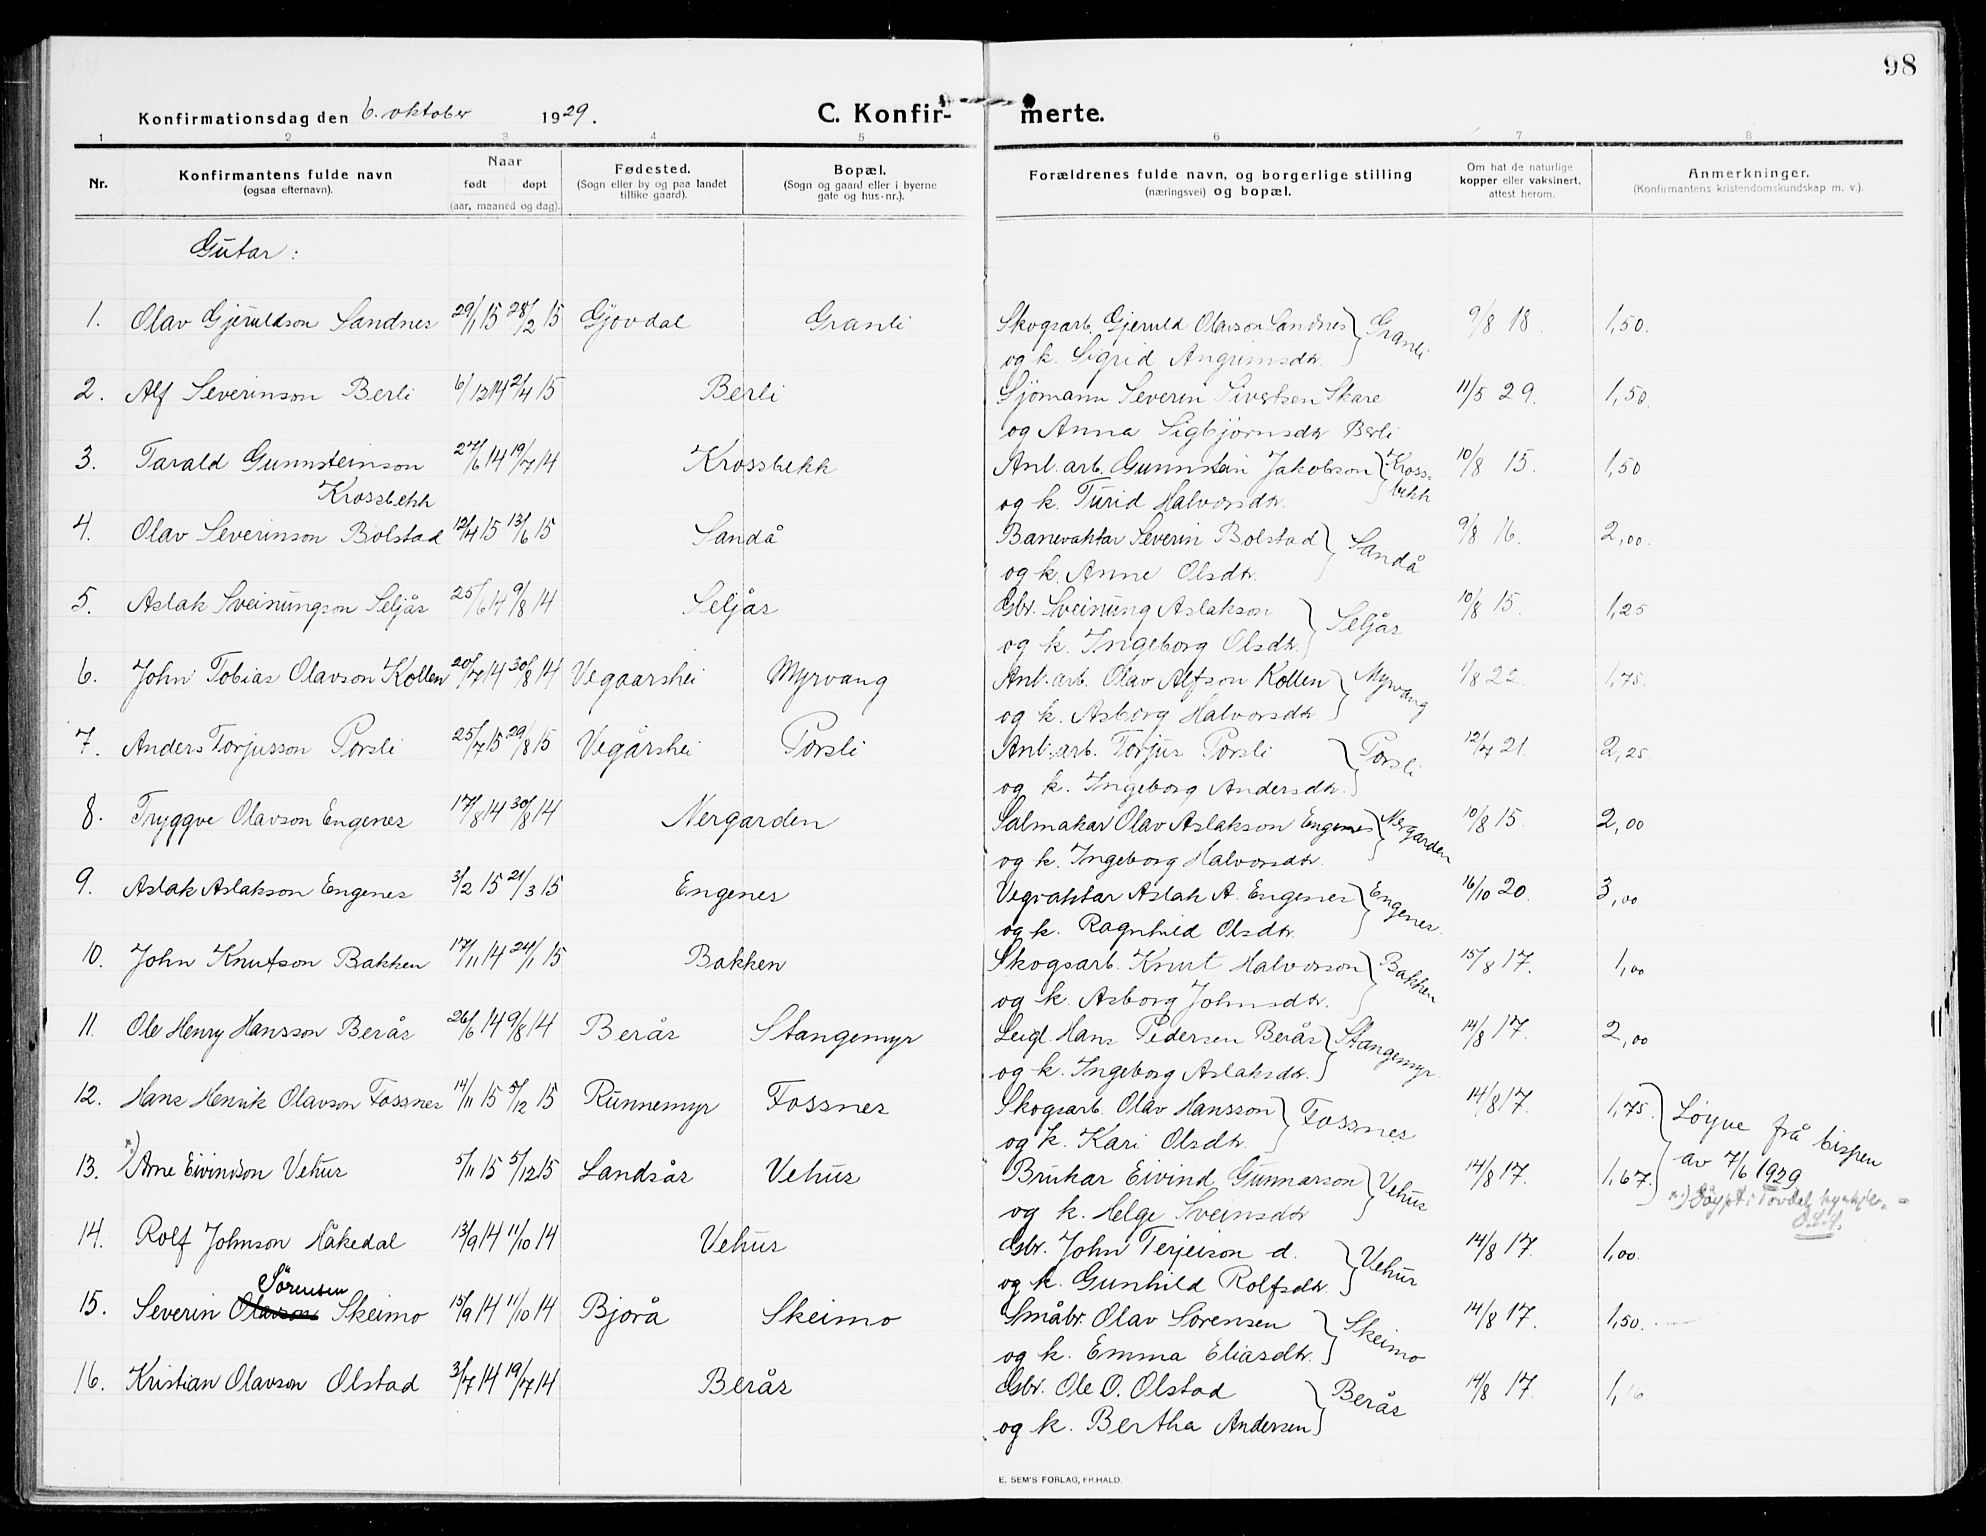 98
Konfirmationsdag den 6. oktober 1929. C. Konfirmerte.
1 2 3 4 5 6 7 8
Nr. Konfirmantens fulde navn (ogsaa efternavn). Naar født døpt (aar, maaned og dag). Fødested. (Sogn eller by og paa landet tillike gaard). Bopæl. (Sogn og gaard eller i byerne gate og hus-nr.). Forældrenes fulde navn, og borgerlige stilling (næringsvei) og bopæl. Om hat de naturlige kopper eller vaksinert, attest herom. Anmerkninger. (Konfirmantens kristendomskundskap m. v.).
Gutar:
1. Olav Gjeruldson Sandnes 29/1 15 28/2 15 Gjövdal Granli Skogsarb. Gjeruld Olavson Sandnes } Granli 9/8 18. 1,50.
og k. Sigrid Angrimsdtr.
2. Alf Severinson Berli 6/12 14 2/4 15 Berli Sjömann Severin Sivertsen Skare 11/5 29. 1,50.
og Anna Sigbjörnsdtr Berli
3. Tarald Gunnsteinson 27/6 14 19/7 14 Krossbekk Anl. arb. Gunnstein Jakobson } Kross- 10/8 15. 1,50
Krossbekk og k. Turid Halvorsdtr. bekk
4. Olav Severinson Bolstad 12/4 15 13/6 15 Sandå Banevaktar Severin Bolstad } Sandå 9/8 16. 2,00.
og k. Anne Olsdtr.
5. Aslak Sveinungson Seljås 25/6 14 9/8 14 Seljås Gbr. Sveinung Aslakson } Seljås 10/8 15. 1,25
og k. Ingeborg Olsdtr.
6. John Tobias Olavson Kollen 20/7 14 30/8 14 Vegaarshei Myrvang Anl. arb. Olav Alfson Kollen } Myrvang 1/8 22. 1,75.
og k. Asborg Halvorsdtr.
7. Anders Torjusson Porsli 25/7 15 29/8 15 Vegårshei Porsli Anl. arb. Torjus Porsli } Porsli 12/7 21. 2,25.
og k. Ingeborg Andersdtr.
8. Tryggve Olavson Engenes 17/8 14 30/8 14 Nergarden Salmakar Olav Aslakson Engenes } Nergarden 10/8 15. 2,00
og k. Ingeborg Halvorsdtr.
9. Aslak Aslakson Engenes 3/2 15 21/3 15 Engenes Vegvaktar Aslak A. Engenes } Engenes. 16/10 20. 3,00
og k. Ragnhild Olsdtr.
10. John Knutson Bakken 17/11 14 24/1 15 Bakken Skogsarb. Knut Halvorson } Bakken 15/8 17. 1,00
og k. Asborg Johnsdtr.
11. Ole Henry Hansson Berås 26/6 14 9/8 14 Berås Stangemyr Leigl. Hans Pedersen Berås } Stangemyr. 14/8 17. 2,00
og k. Ingeborg Aslaksdtr.
12. Hans Henrik Olavson Fossnes 14/11 15 5/12 15 Runnemyr Fossnes Skogsarb. Olav Hansson } Fossnes 14/8 17. 1,75. } Löyve frå bispen
og k. Kari Olsdtr. av 7/6 1929
13. x) Arne Eivindson Vehus 5/11 15 5/12 15 Landsås Vehus Brukar Eivind Gunnarson } Vehus 14/8 17. 1,67.
og k. Helge Sveinsdtr x) Döypt i Tovdal
14. Rolf Johnson Håkedal 13/9 14 11/10 14 Vehus Gbr. John Terjeison d. } Vehus 14/8 17. 1,00.
og k. Gunhild Rolfsdtr.
Sörensen
15. Severin Olavson Skeimo 15/9 14 11/10 14 Bjorå Skeimo Småbr. Olav Sörensen } Skeimo 14/8 17. 1,50.
og k. Emma Eliasdtr.
16. Kristian Olavson Ølstad 3/7 14 19/7 14 Berås Gbr. Ole O. Ølstad } Berås 14/8 17. 1,16
og k. Bertha Andersen
E. SEM'S FORLAG, FR.HALD.